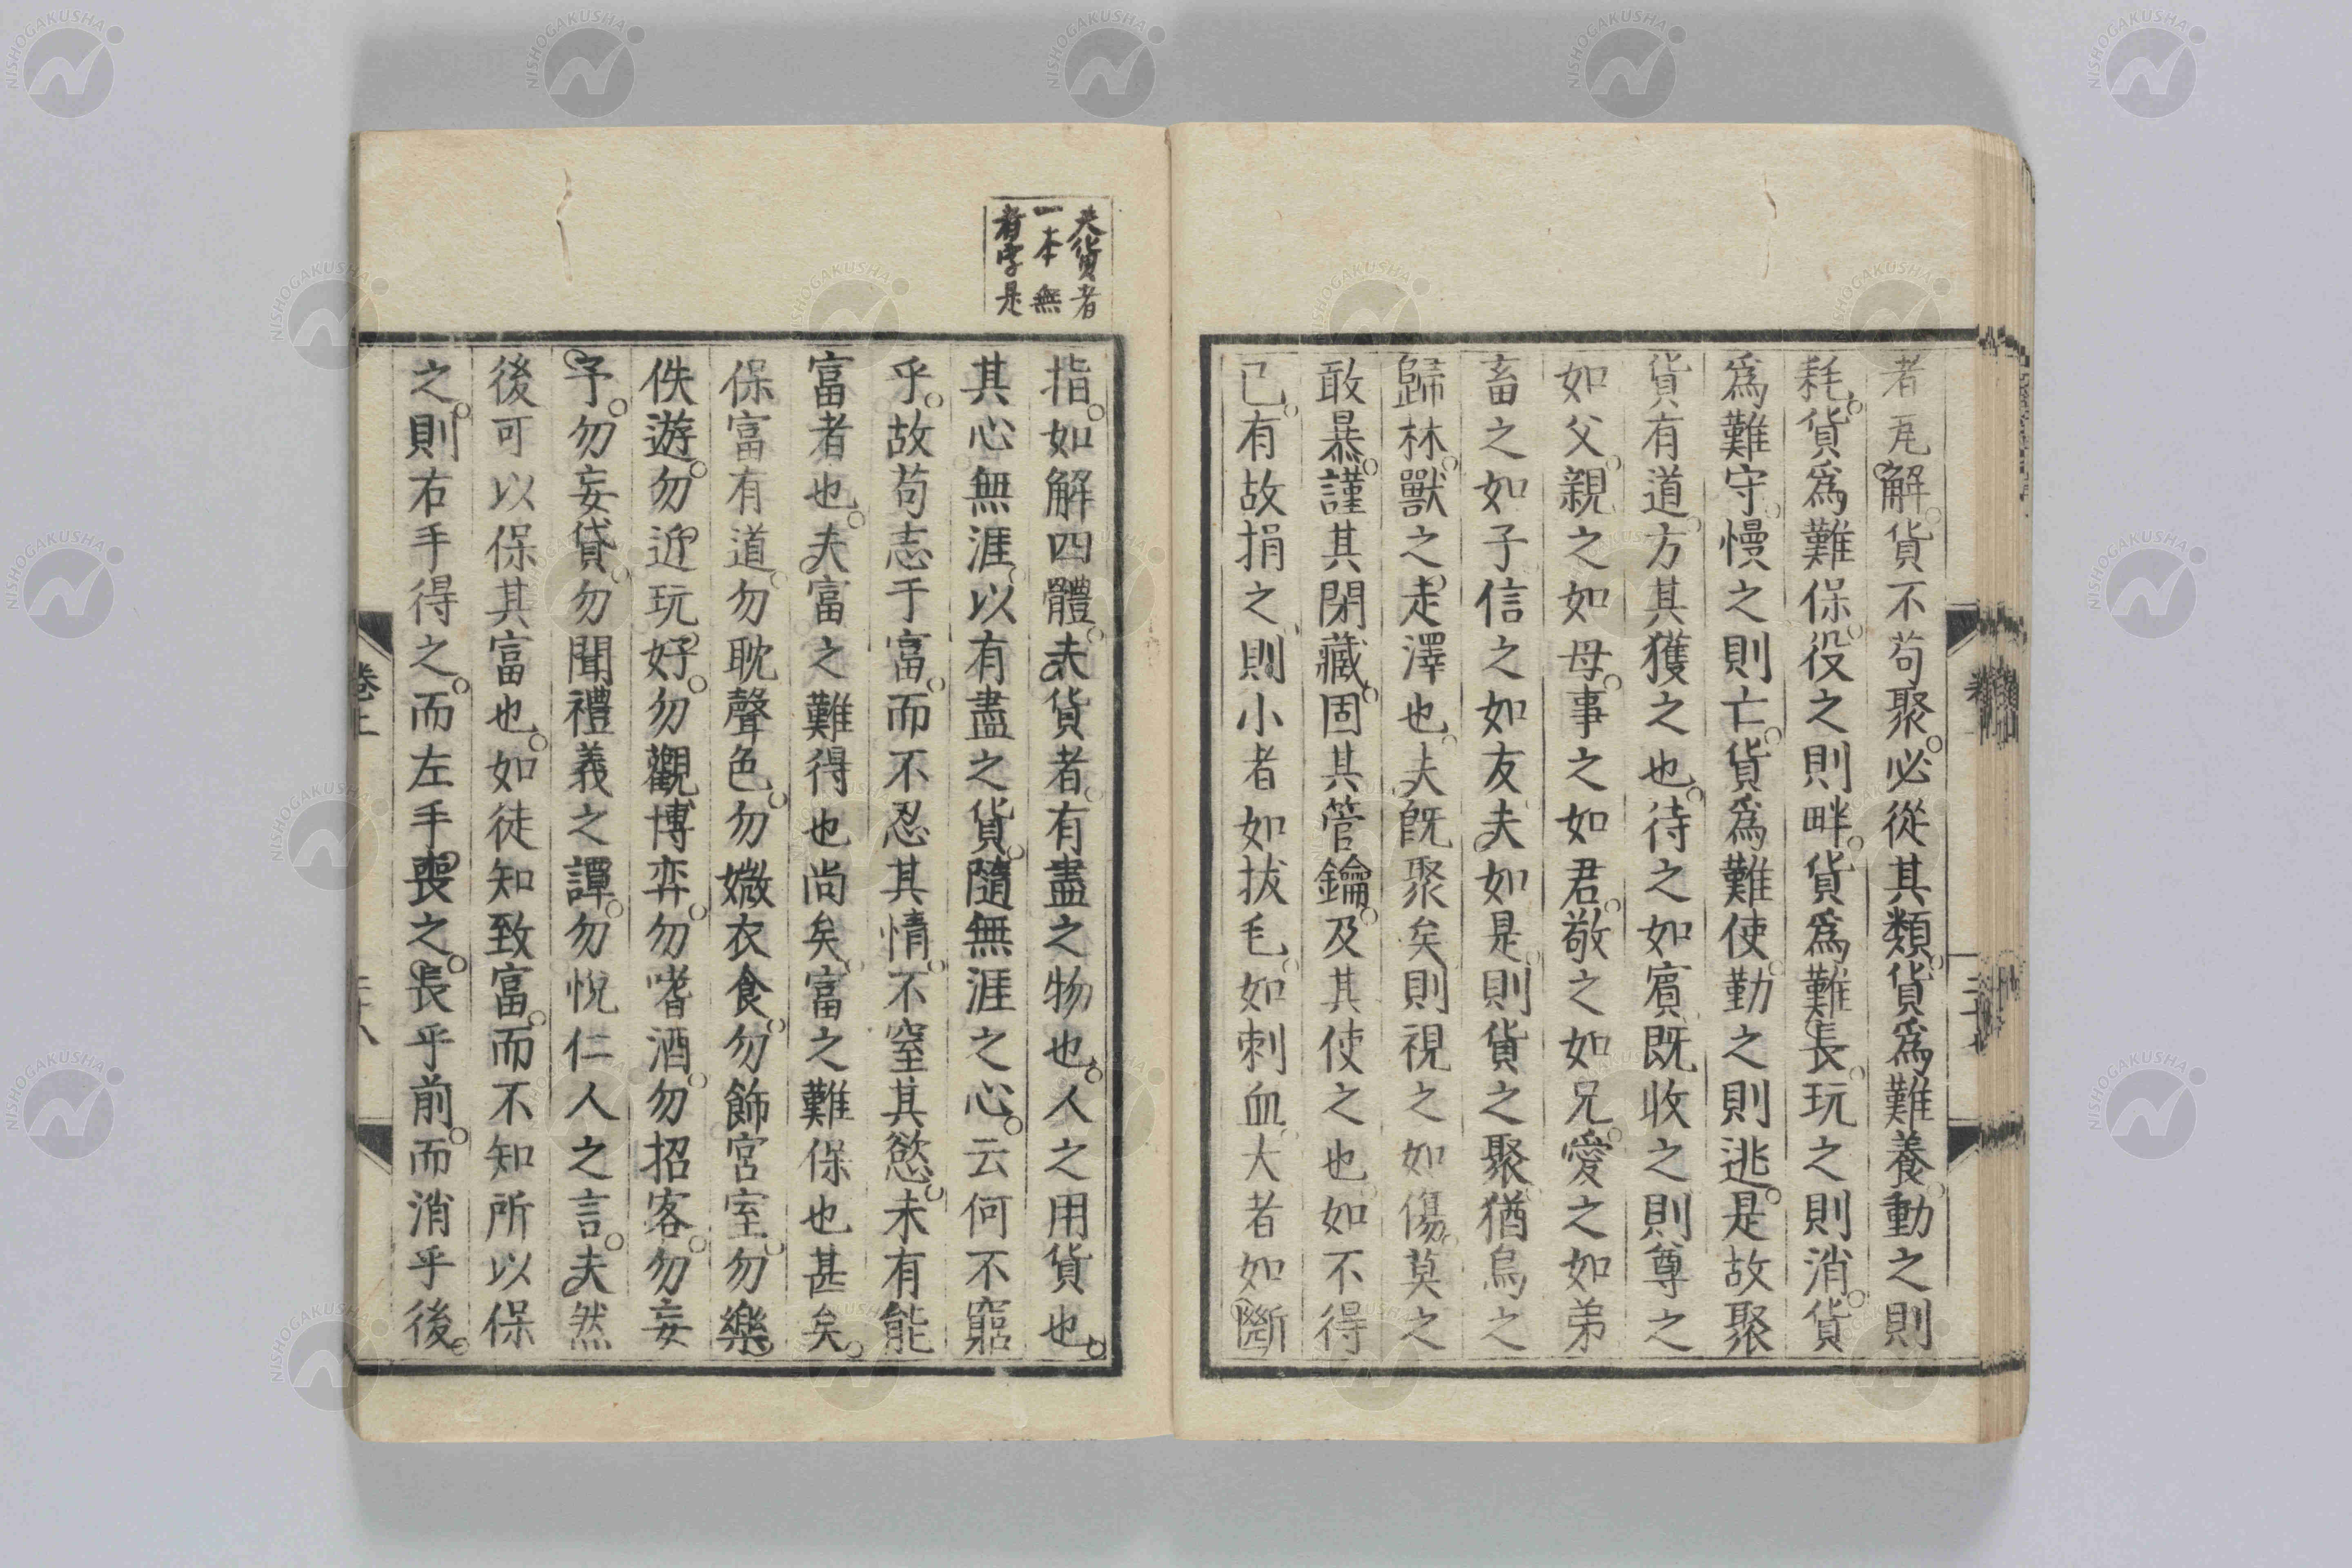 者瓦解。貨不苟聚。必從其類。貨爲難養。動之則
耗。貨爲難保。役之則畔。貨爲難長。玩之則消。貨
爲難守。慢之則亡。貨爲難使。勤之則逃。是故聚
貨有道。方其獲之也。待之如賓。既收之則尊之
如父。親之如母。事之如君。敬之如兄。愛之如弟
畜之如子。信之如友。夫如是。則貨之聚。猶鳥之
歸林。獸之走澤也。夫既聚矣。則視之如傷。莫之
敢暴。謹其閉藏。固其管鑰。及其使之也。如不得
已。有故捐之。則小者如拔毛。如刺血。大者如斷
夫貨者
一本無
者字是
指。如解四體。夫貨者。有盡之物也。人之用貨也。
其心無涯。以有盡之貨。隨無涯之心。云何不窮
乎。故苟志于富。而不忍其情。不窒其慾。未有能
富者也。夫富之難得也尚矣。富之難保也甚矣。
保富有道。勿耽聲色。勿媺衣食。勿飾宮室。勿樂
佚遊。勿近玩好。勿觀博弈。勿嗜酒。勿招客。勿妄
予。勿妄貸。勿聞禮義之譚。勿悅仁人之言。夫然
後可以保其富也。如徒知致富。而不知所以保
之。則右手得之。而左手喪之。長乎前。而消乎後。
卷上